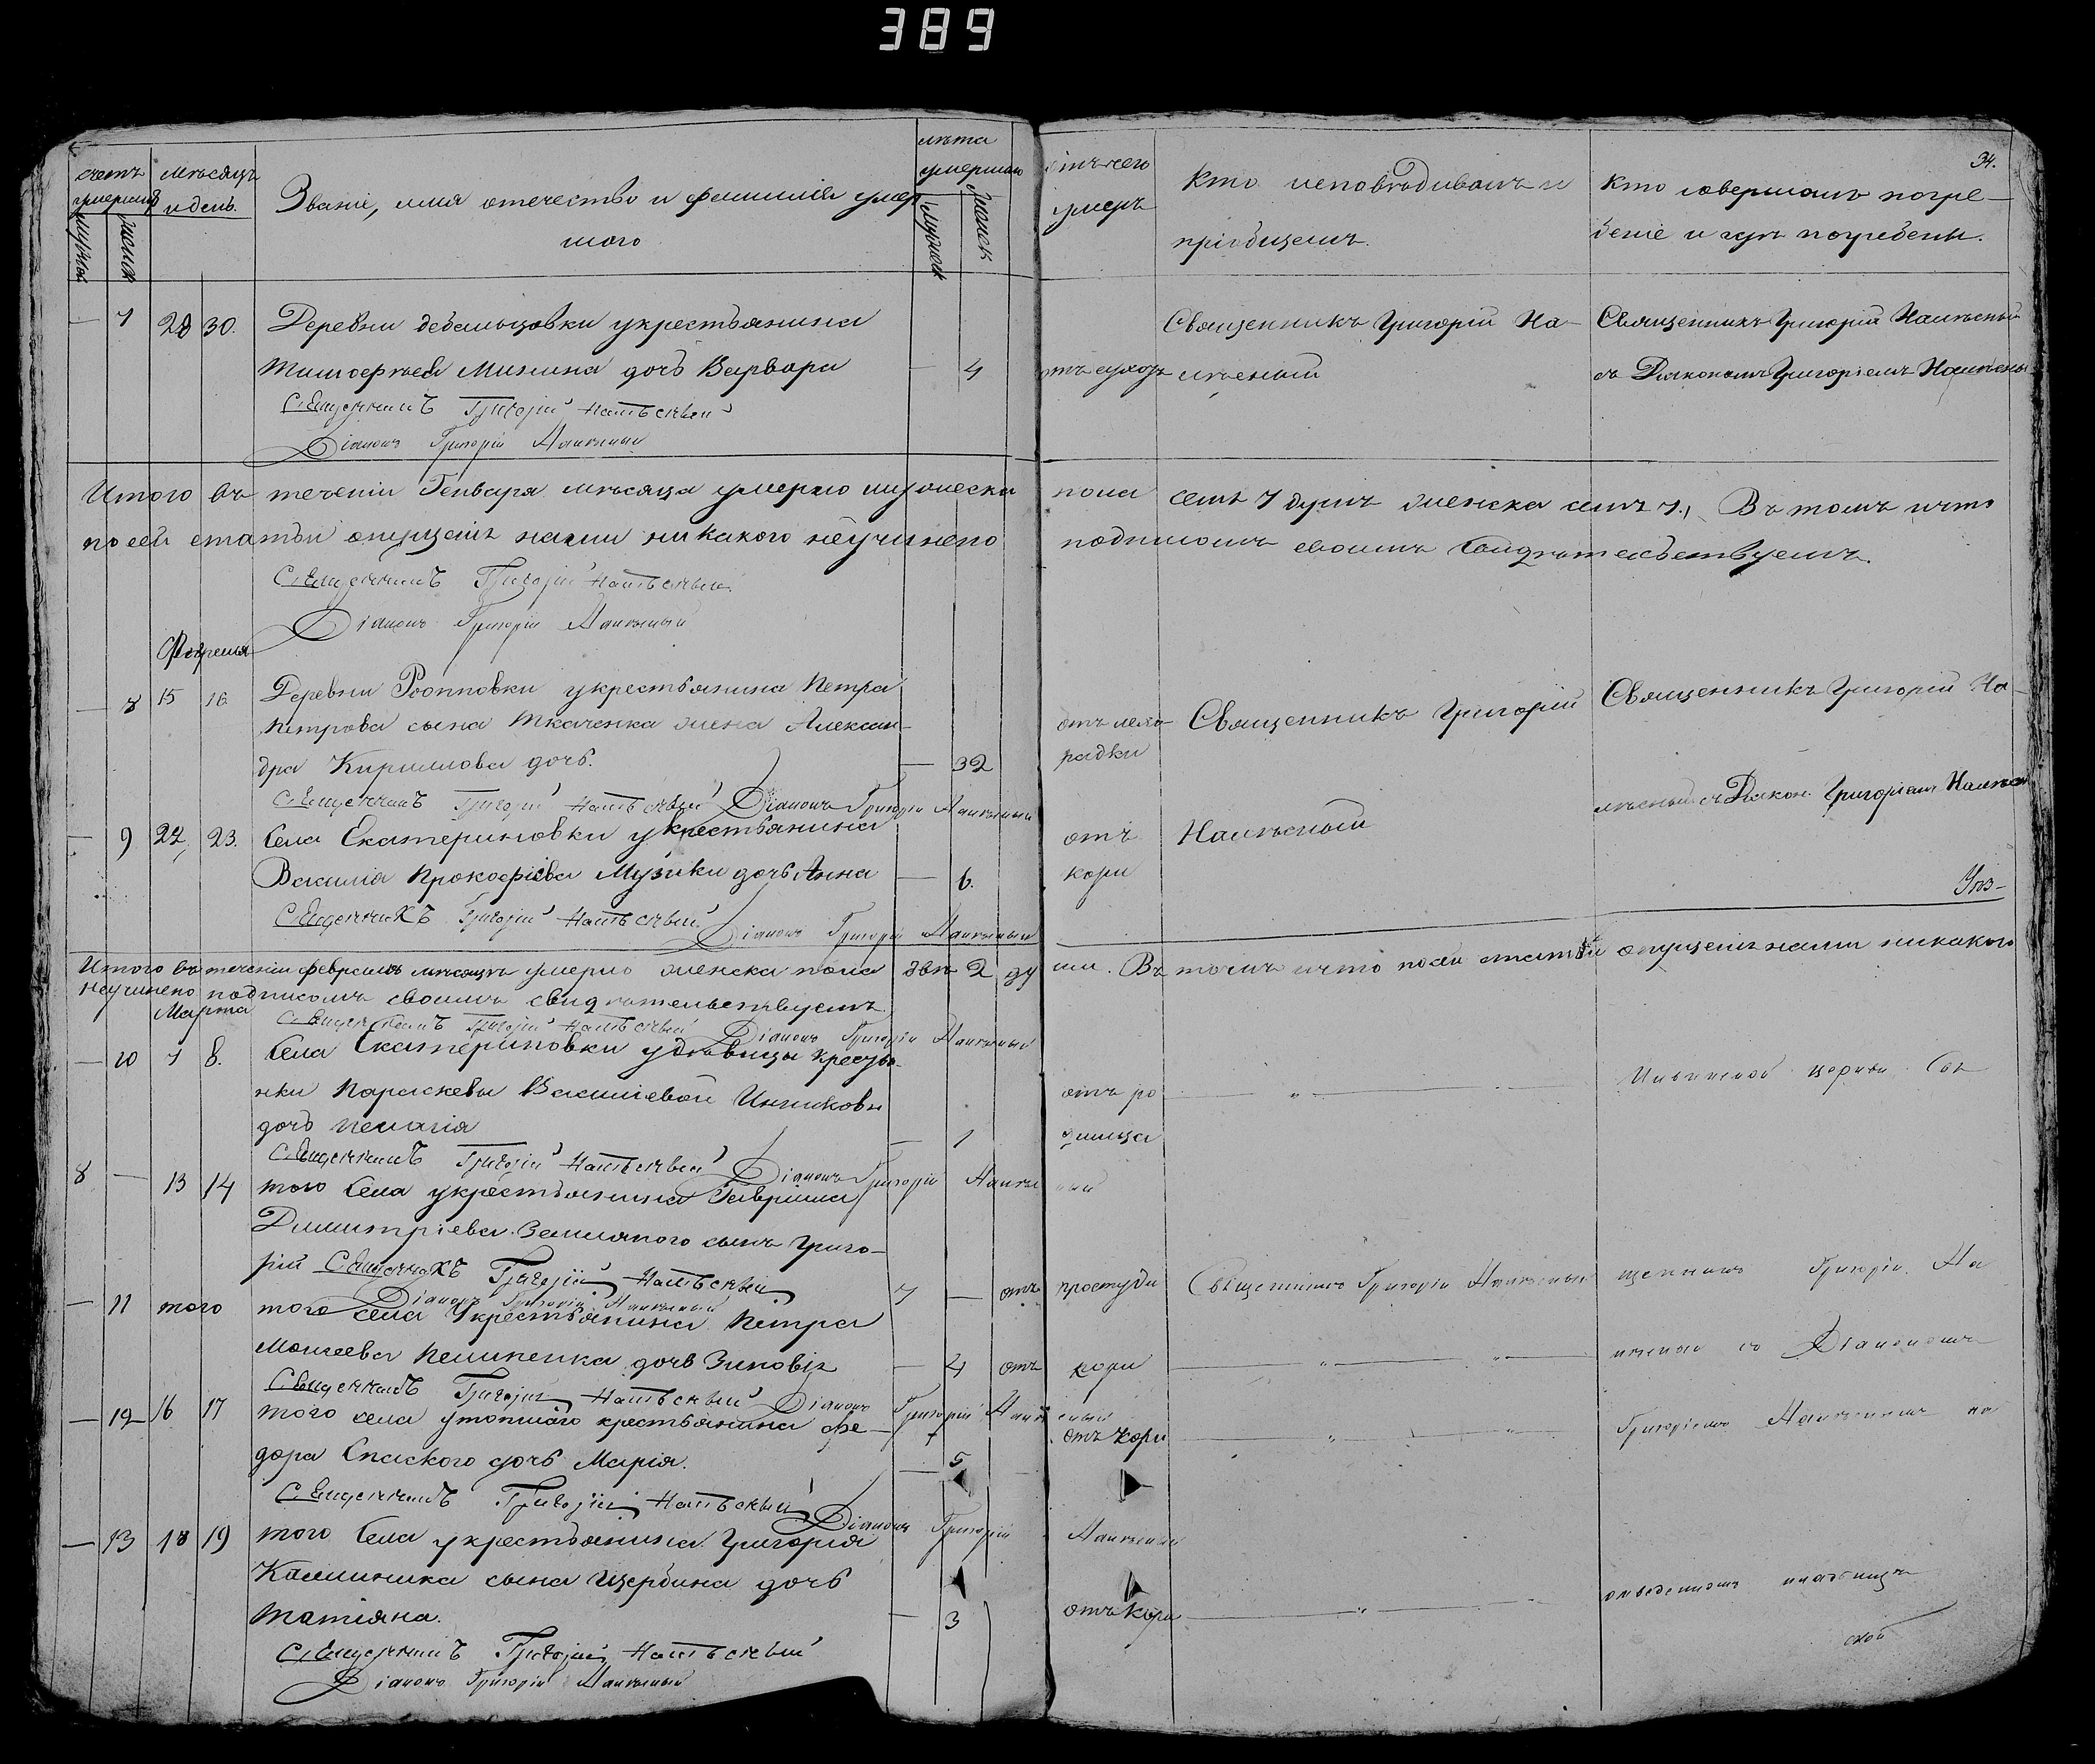 389
34.
счетъ умершихъ
мужеска
женска
мѣсяцъ и день.
Званіе, имя отечество и фамилія умер
шаго
лѣта умершаго
Мужеск
Женск
отъ чего умеръ
Кто исповѣдывалъ и
пріобщалъ.
Кто совершалъ погре-
беніе и гдѣ погребены.
— 7 28 30. Деревни дебальцовки укрестьянина
Тимофѣея Минина дочь Варвара — 4
отъ сухот
Священникъ Григорій На-
мѣсный
Священникъ Григорій Намѣсный
съ Діякономъ Григоріемъ Намѣсны
Священникъ Григорій Намѣсный
Діаконъ Григорій Намѣсный
Итого въ теченіи Генваря мѣсяца умерло мужеска пола семь 7 душъ женска семь 7., Въ томъ и что
по сей статьи опущеніе нами никакого неучинено подписомъ своимъ свидѣтельствуемъ.
Священникъ Григорій Намѣсный
Діаконъ Григорій Намѣсный
Февраля
— 8 15 16 Деревни Роопповки укрестьянина Петра
Петрова сына Ткаченка жена Алексан-
дра Кирилова дочь. — 32
отъ лехо-
радки
Священникъ Григорій
Священникъ Григорій На-
Священникъ Григорій Намѣсный Діаконъ Григорій Намѣсный
мѣсный съ Діякон. Григоріем Намѣсн
— 9 22, 23. Села Екатериновки укрестьянина
Василія Прокофіева Музики дочь Анна — 6.
отъ
кори
Намѣсный
Священникъ Григорій Намѣсный Діаконъ Григорій Намѣсный
Итого въ теченіи февраля мѣсяцѣ умерло женска пола двѣ 2 ду ши. Въ томъ и что посей статьи опущеніе нами никакого
неучинено подписомъ своимъ свидѣтельствуемъ
Марта
Священникъ Григорій Намѣсный Діаконъ Григорій Намѣсный
— 10 7 8. Села Екатериновки удовицы кресть-
нки Параскевы Василіевой
дочь Пелагія — 1
отъ ро
димца
— „ —
церкви Свя
Священникъ Григорій Намѣсный Діаконъ Григорій Намѣсный
8 — 13 14 того Села укрестьянина Гавріила
Димитріева Землянаго сынъ Григо-
рій 7 — отъ простуды Священникъ Григорій Намѣсный
щенникъ Григорій На
Священникъ Григорій Намѣсный
Діаконъ Григорій Намѣсный
— 11 того того села Укрестьянина Петра
Моисеева дочь Зиновія — 4 отъ кори — „ — „ —
мѣсный съ Діакономъ
Священникъ Григорій Намѣсный Діаконъ Григорій Намѣсный
— 12 16 17 того села утопшаго крестьянина Фе-
дора Спаского дочь Марія. — 5
отъ кори — „ — „ —
Григоріемъ Намѣснымъ на
Священникъ Григорій Намѣсный Діаконъ Григорій Намѣсный
— 13 18 19 того Села укрестьянина Григорія
Калиника сына Щербина дочь
Татіяна. — 3
отъ кори — „ —
отведенномъ кладбищѣ
Священникъ Григорій Намѣсный
Діаконъ Григорій Намѣсный